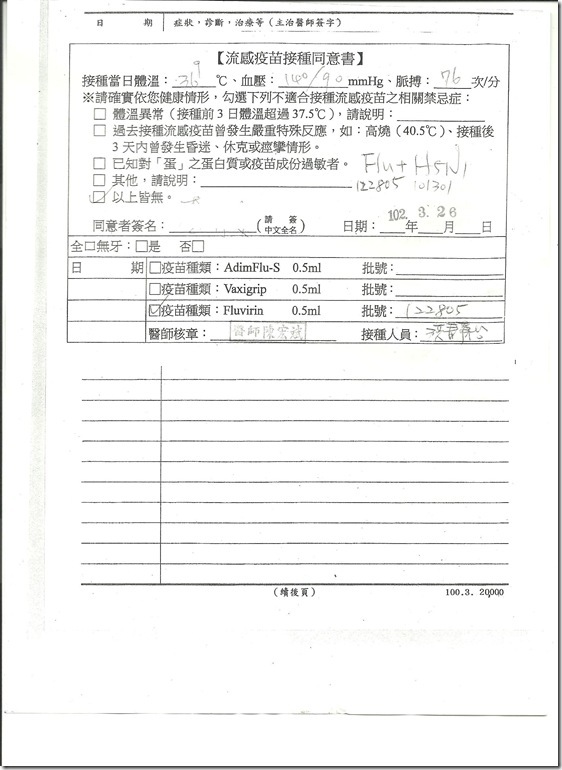 日　　　期 症狀，診斷，治療等（主治醫師簽字）
【流感疫苗接種同意書】
接種當日體溫：36⁹℃、血壓：140/90mmHg、脈搏：76次/分
※請確實依您健康情形，勾選下列不適合接種流感疫苗之相關禁忌症：
□ 體溫異常（接種前3日體溫超過37.5℃），請說明：
□ 過去接種流感疫苗曾發生嚴重特殊反應，如：高燒（40.5℃）、接種後
3天內曾發生昏迷、休克或痙攣情形。
□ 已知對「蛋」之蛋白質或疫苗成份過敏者。 Flu + H5N1
□ 其他，請說明： 122805 101301
☑ 以上皆無。
同意者簽名：（請簽中文全名） 日期：102年3月26日
全口無牙：□是 否□
日　　　期 □疫苗種類：AdimFlu-S 0.5ml 批號：
□疫苗種類：Vaxigrip 0.5ml 批號：
☑疫苗種類：Fluvirin 0.5ml 批號：122805
醫師核章：醫師陳宏 接種人員：
（續後頁） 100.3. 20000